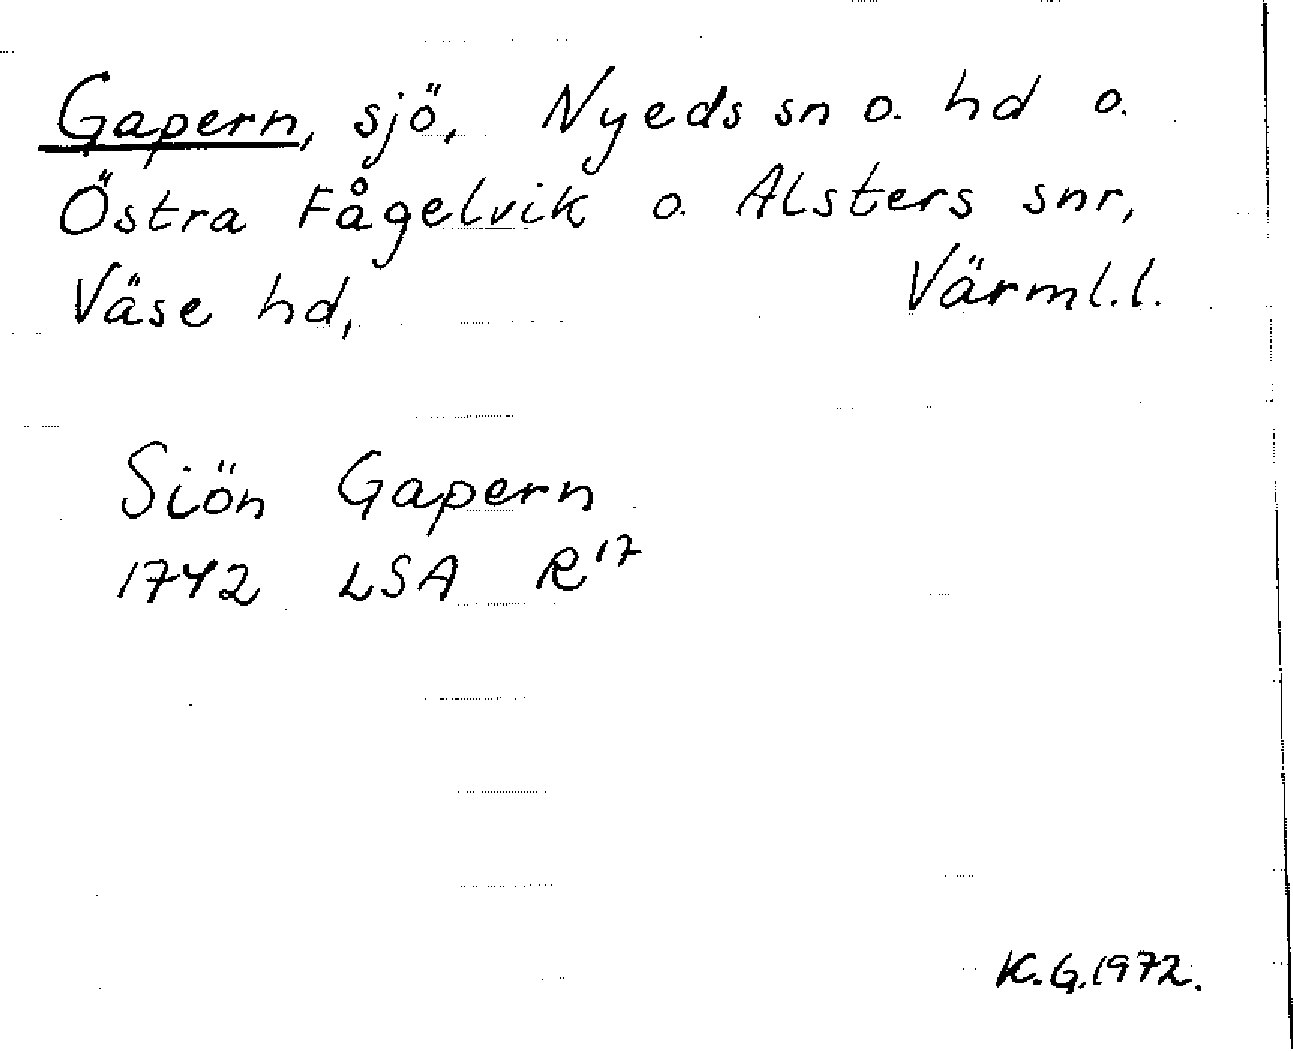 Gapern, sjö, Nyeds sn o. hd o.
Östra Fågelvik o. Alsters snr,
Väse hd, Värml.l.
Siön Gapern
1742 LSA R17
K.G.1972.